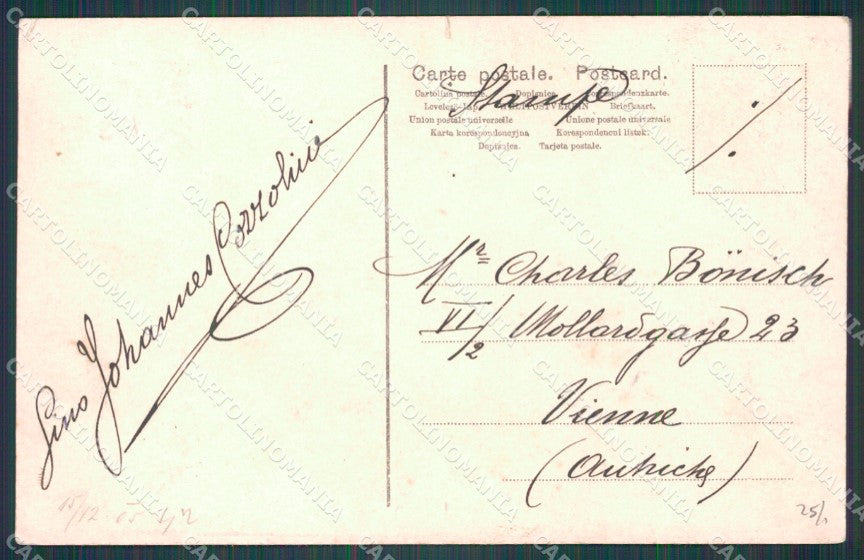 Carte postale. Postcard.
Cartolina postale. Dopisnica. Correspondenzkarte.
Stampe
WELTPOSTVEREIN Briefkaart.
Union postale universelle Unione postale universale
Karta korespondencyjna Korespondencni listek.
Dopisnica. Tarjeta postale.
Gino Johannes Cozzolini
Mr Charles Bönisch
VI/2 Mollardgasse 23
Vienne
(Autriche)
15/12 05
25/
CARTOLINOMANIA